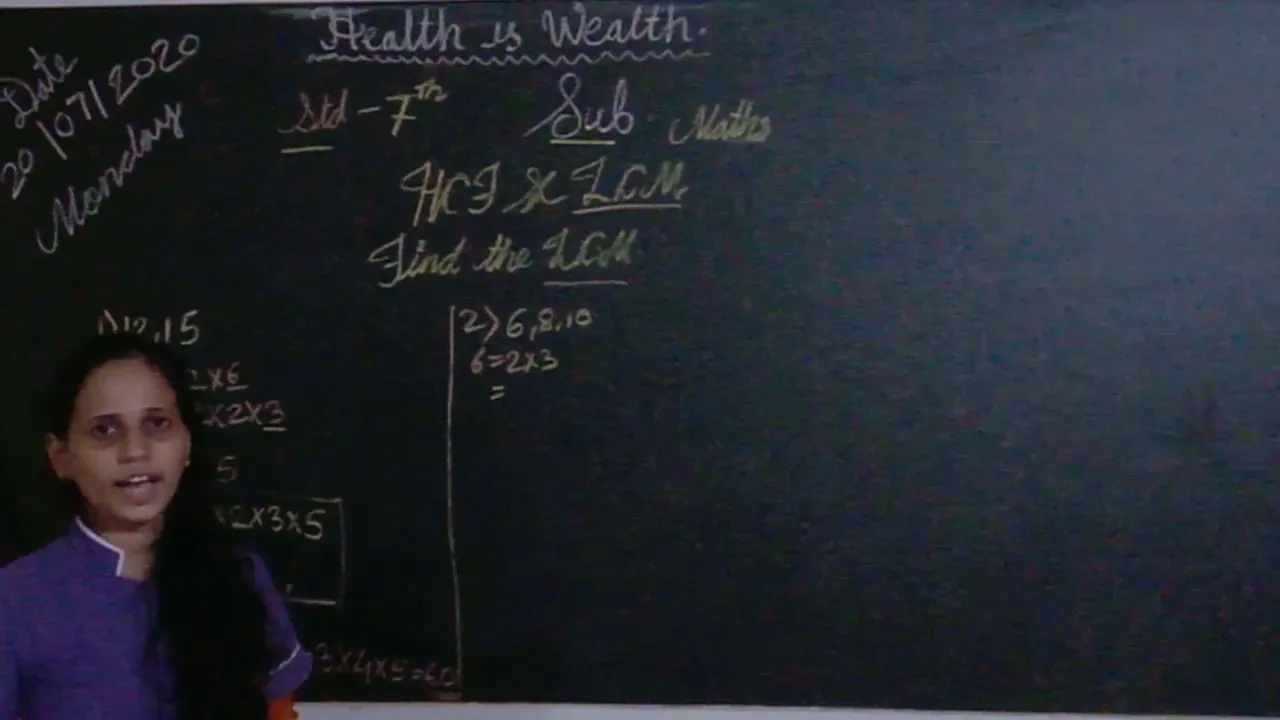 Health is Wealth.
Date
20/07/2020
Monday
Std - 7th Sub. Maths
HCF & LCM.
Find the LCM
1) 12, 15
2×6
×2×3
5
×2×3×5
3×4×5=60
2) 6, 8, 10
6=2×3
=